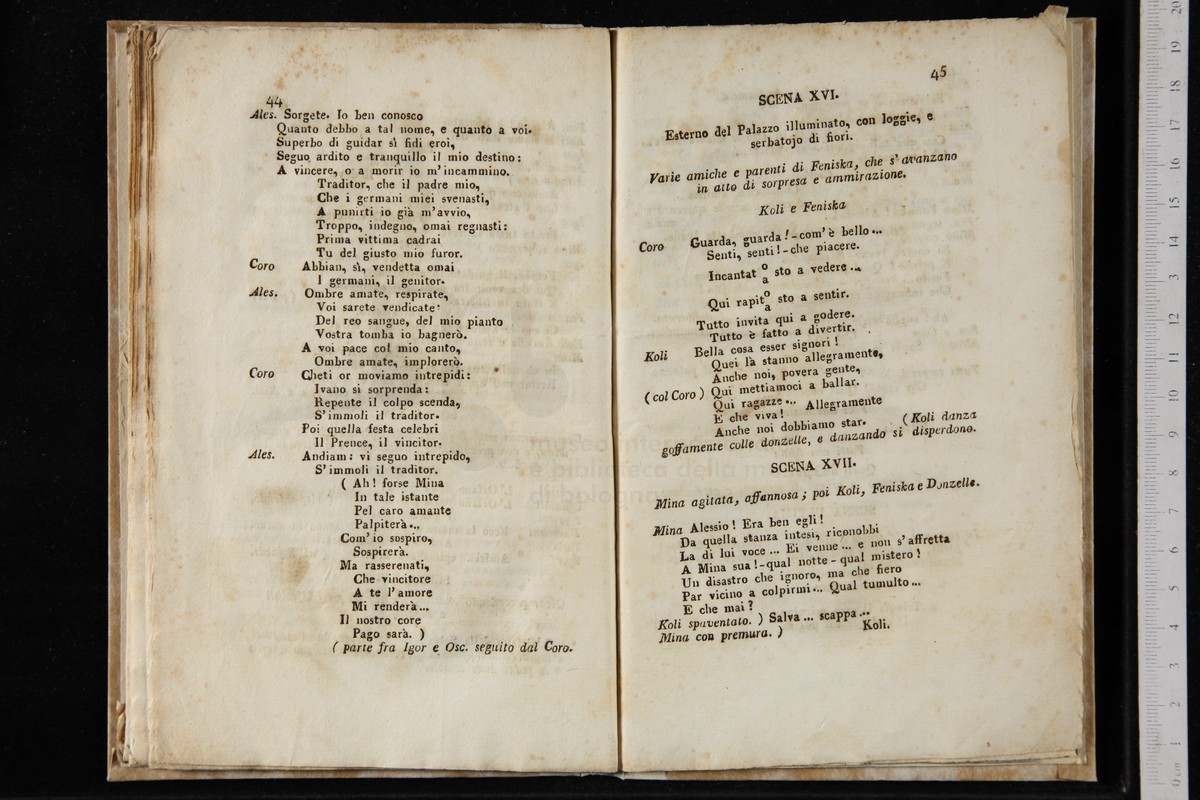 44
Ales. Sorgete. Io ben conosco
Quanto debbo a tal nome, e quanto a voi.
Superbo di guidar sì fidi eroi,
Seguo ardito e tranquillo il mio destino:
A vincere, o a morir io m'incammino.
Traditor, che il padre mio,
Che i germani miei svenasti,
A punirti io già m'avvio,
Troppo, indegno, omai regnasti:
Prima vittima cadrai
Tu del giusto mio furor.
Coro Abbian, sì, vendetta omai
I germani, il genitor.
Ales. Ombre amate, respirate,
Voi sarete vendicate:
Del reo sangue, del mio pianto
Vostra tomba io bagnerò.
A voi pace col mio canto,
Ombre amate, implorerò.
Coro Cheti or moviamo intrepidi:
Ivano si sorprenda:
Repente il colpo scenda,
S'immoli il traditor.
Poi quella festa celebri
Il Prence, il vincitor.
Ales. Andiam: vi seguo intrepido,
S'immoli il traditor.
( Ah! forse Mina
In tale istante
Pel caro amante
Palpiterà...
Com'io sospiro,
Sospirerà.
Ma rasserenati,
Che vincitore
A te l'amore
Mi renderà...
Il nostro core
Pago sarà. )
( parte fra Igor e Osc. seguito dal Coro.
45
SCENA XVI.
Esterno del Palazzo illuminato, con loggie, e
serbatojo di fiori.
Varie amiche e parenti di Feniska, che s'avanzano
in atto di sorpresa e ammirazione.
Koli e Feniska
Coro Guarda, guarda! - com'è bello...
Senti, senti! - che piacere.
Incantat o/a sto a vedere...
Qui rapit o/a sto a sentir.
Tutto invita qui a godere.
Tutto è fatto a divertir.
Koli Bella cosa esser signori!
Quei là stanno allegramente,
Anche noi, povera gente,
( col Coro ) Qui mettiamoci a ballar.
Qui ragazze... Allegramente
E che viva!
Anche noi dobbiamo star. ( Koli danza
goffamente colle donzelle, e danzando si disperdono.
SCENA XVII.
Mina agitata, affannosa; poi Koli, Feniska e Donzelle.
Mina Alessio! Era ben egli!
Da quella stanza intesi, riconobbi
La di lui voce... Ei venne... e non s'affretta
A Mina sua! - qual notte - qual mistero!
Un disastro che ignoro, ma che fiero
Par vicino a colpirmi... Qual tumulto...
E che mai?
Koli spaventato. ) Salva... scappa...
Mina con premura. ) Koli.
museo inter
e biblioteca della m
di bologna
20
19
18
17
16
15
14
13
12
11
10
9
8
7
6
5
4
3
2
1
0 cm